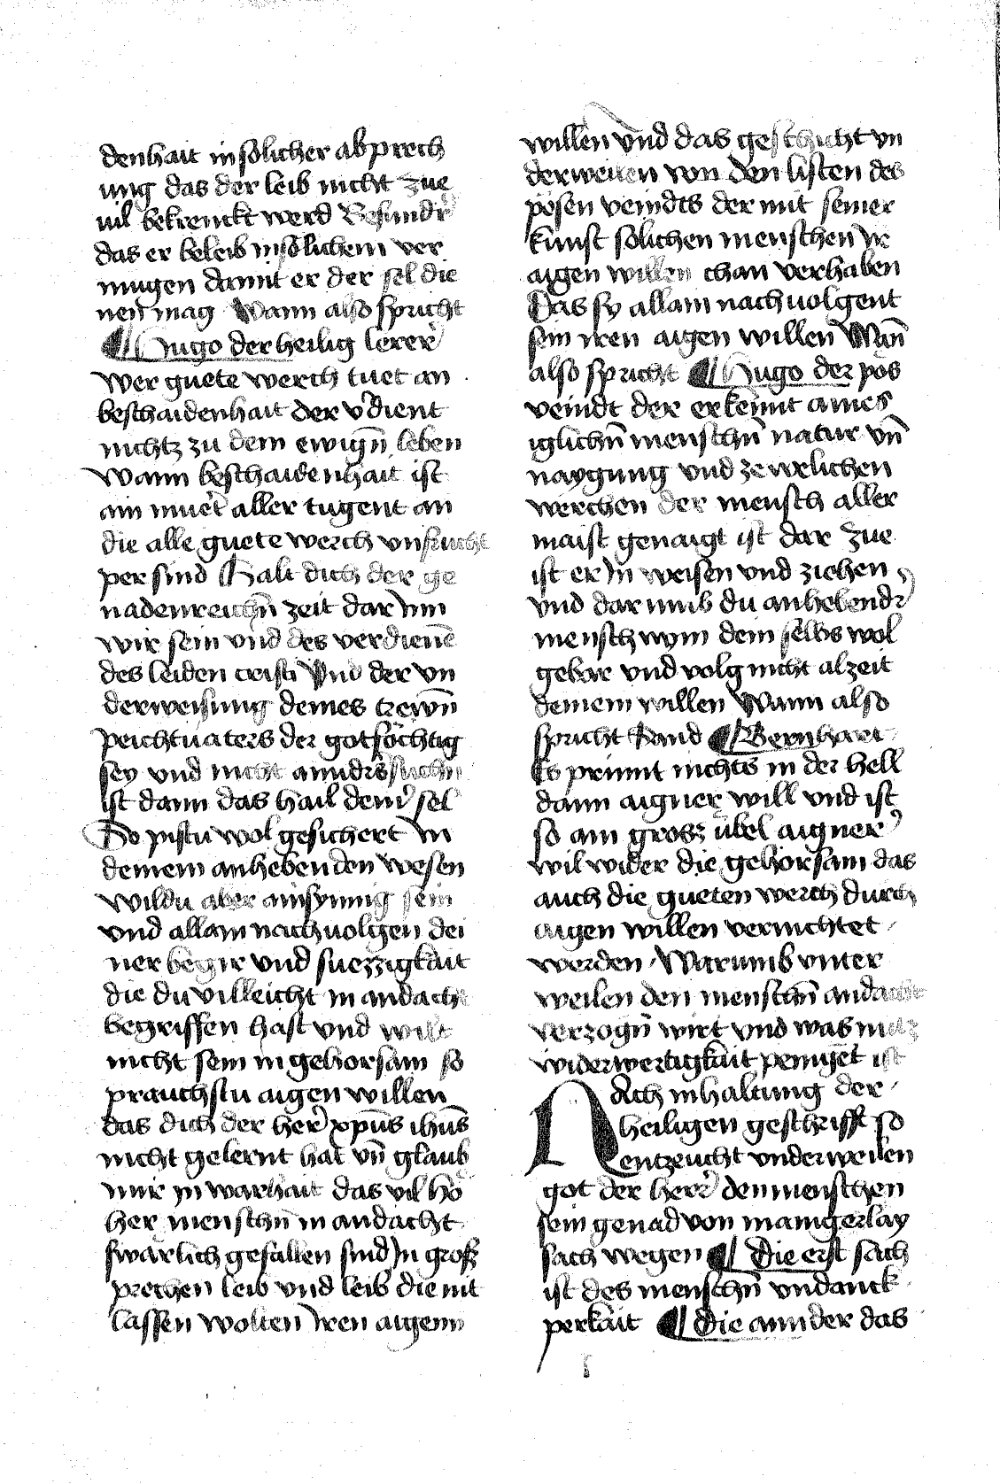 denhait in solicher abprech
ung das der leib nicht zue
uil bekrenckt werd Besundr̄
das er beleib in solichem ver
mugen damit er der sel die
nen mag Wann also spricht
¶ Hugo der heilig lerer
wer guete werch tuet an
beschaidenhait der v̄dient
nichtz zu dem ewign̄ leben
Wann beschaidenhait ist
ain muet̄ aller tugent an
die alle guete werch vnfrucht
per sind Halt dich der ge
nadenreichn̄ zeit dar Inn
wir sein vnd des verdienē
des leiden cristi Vnd der vn
derweisung deines trewn̄
peichtuaters der gotföchtig
sey vnd nicht anndrs̄ suchn̄
ist dann das hail deinˀ sel
So pistu wol gesichert In
deinem anhebenden wesen
wildu aber ainsynnig sein
vnd allain nachuolgen dei
ner begir vnd suezzigkait
die du villeicht in andacht
begriffen hast vnd wilt
nicht sein in gehorsam so
prauchstu aigen willen
das dich der herˀ xp̄us ihūs
nicht gelernt hat vn̄ glaub
mir in warhait das vil ho
her menschn̄ in andacht
swarlich gefallen sind In groß
prechen leib vnd leib die nit
lassen wolten Iren aigenn
willen vnd das geschicht vn
derweilen von den listen des
pösen veindts der mit seiner
kunst solichen menschen Ir
aigen willen chan verhaben
Das sy allain nachuolgent
sein iren aigen willen Wan̄
also spricht ¶ Hugo der pös
veindt der erkennt aines
iglichn̄ menschn̄ natur vn̄
naygung vnd ze welichen
werchen der mensch aller
maist genaigt ist dar zue
ist er In weisen vnd ziehen
vnd darumb du anhebendˀ
mensch nym dein selbs wol
gebar vnd volg nicht alzeit
deinem willen Wann also
spricht Sand ¶ Bernhart
Es prinnt nichts in der hell
dann aigner will vnd ist
so ain grosz übel aignerˀ
wil wider die gehorsam das
auch die gueten werch durch
aigen willen vernichtet
werden Warumb vnter
weilen den menschn̄ andacht
verzogn̄ wirt vnd was nutz
widerwertigkait peniget ist
Nach inhaltung der
heiligen geschrifft so
entzeucht vnderweilen
got der herrˀ den menschen
sein genad von manigerlay
sach wegen ¶ Die erst sach
ist des menschn̄ vndanck
perkait ¶ Die annder das